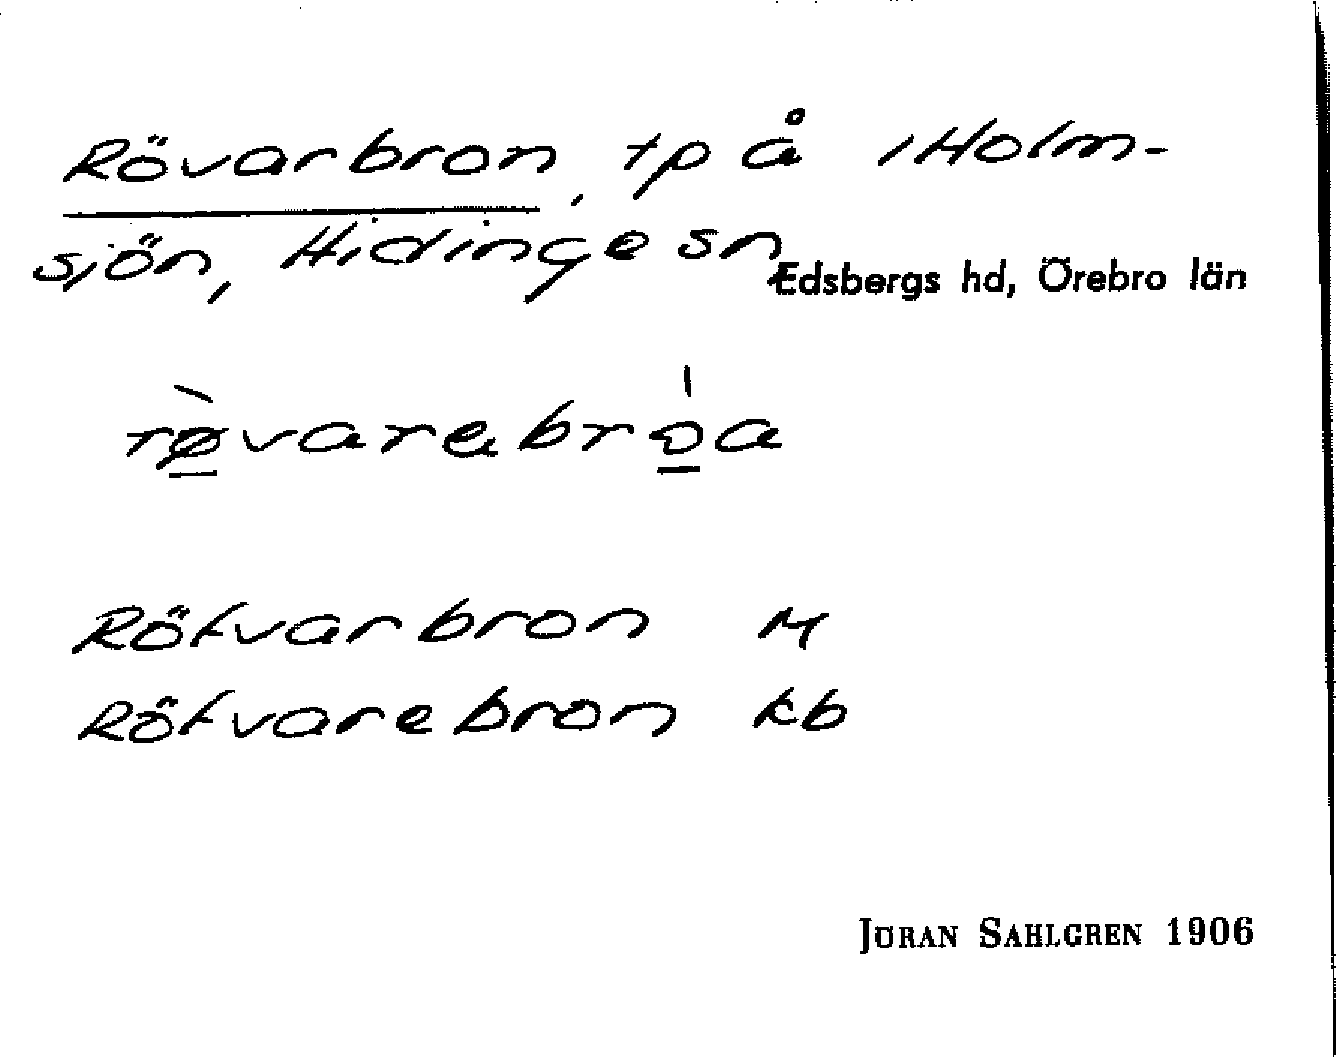 Rövarbron, tp å i Holm-
sjön, Hidinge sn
Edsbergs hd, Örebro län
rø̀varebró̠a
Röfvarbron M
Röfvarebron kb
JÖRAN SAHLGREN 1906